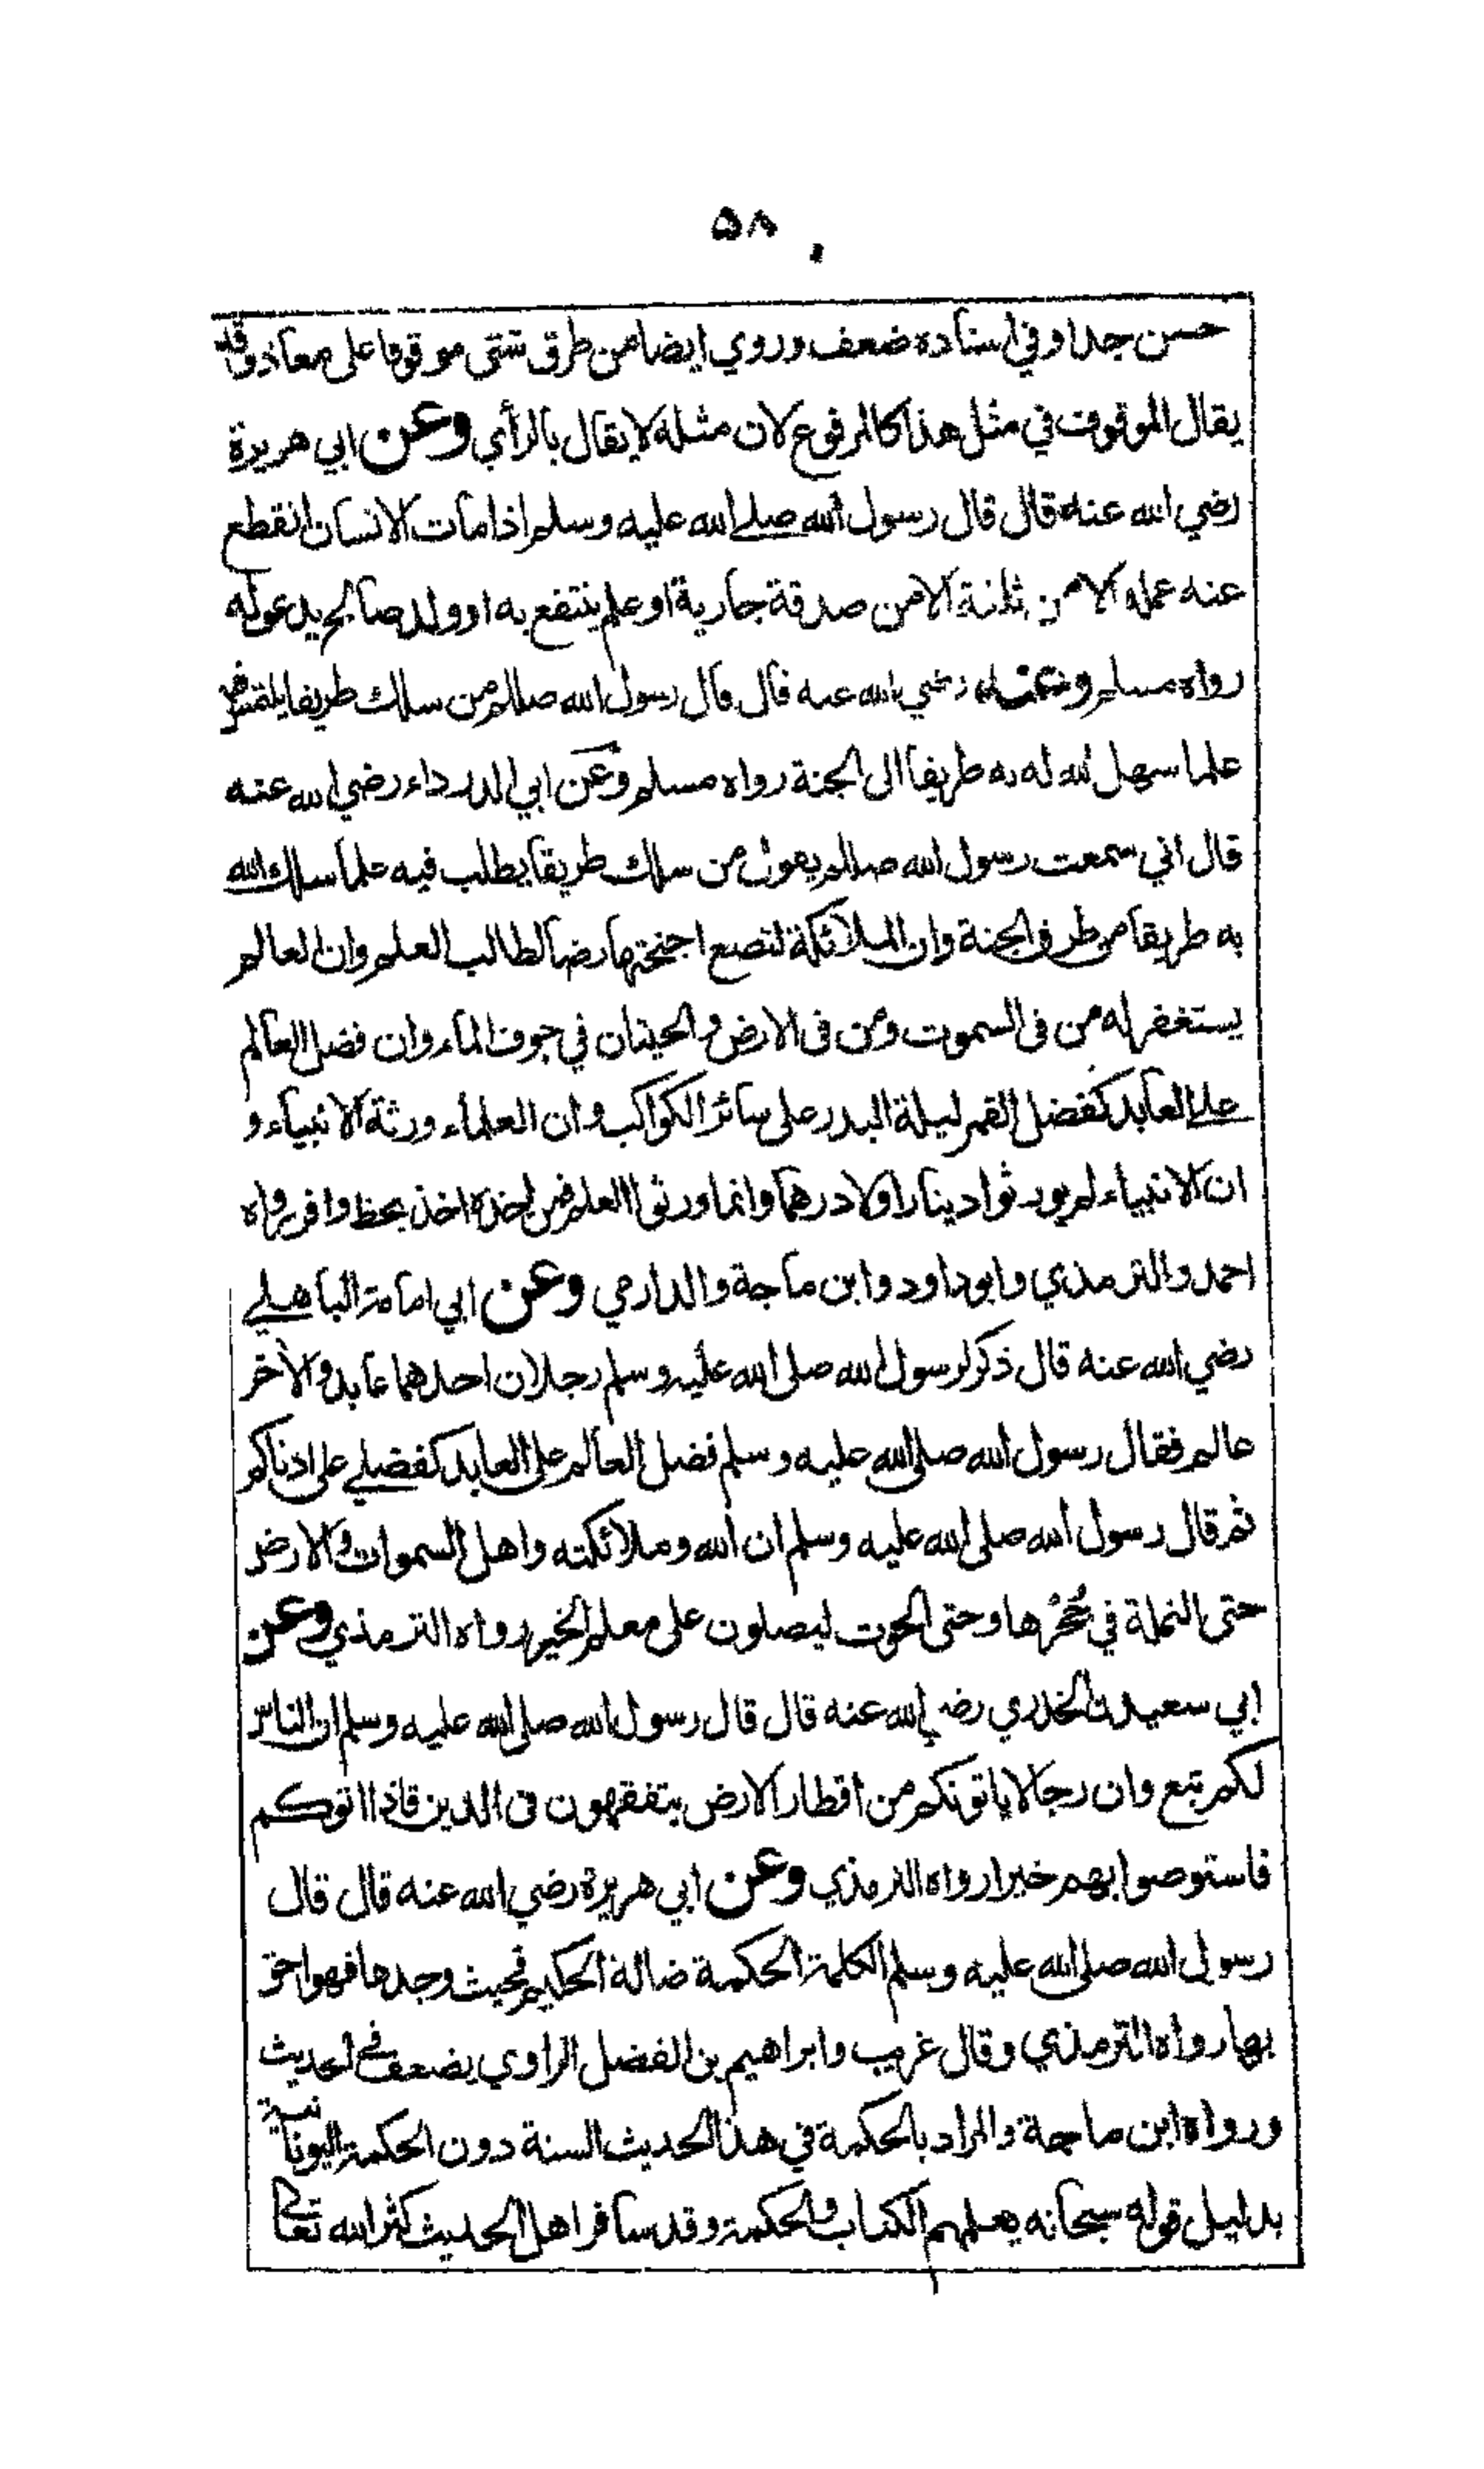 ۵۸
حسن جدا وفي اسناده ضعف وروي ايضا من طرق شتى موقوفا على معاذ وقد
يقال الموقوف في مثل هذا كالمرفوع لان مثله لا يقال بالرأي وعن ابي هريرة
رضي الله عنه قال قال رسول الله صلى الله عليه وسلم اذا مات الانسان انقطع
عنه عمله الا من ثلثة الا من صدقة جارية او علم ينتفع به او ولد صالح يدعو له
رواه مسلم وعنه رضي الله عنه قال قال رسول الله صللم من سلك طريقا يلتمس فيه
علما سهل الله له به طريقا الى الجنة رواه مسلم وعن ابي الدرداء رضي الله عنه
قال اني سمعت رسول الله صللم يقول من سلك طريقا يطلب فيه علما سلك الله
به طريقا من طرق الجنة وان الملائكة لتضع اجنحتها رضا لطالب العلم وان العالم
يستغفر له من فى السموت ومن فى الارض والحيتان في جوف الماء وان فضل العالم
على العابد كفضل القمر ليلة البدر على سائر الكواكب وان العلماء ورثة الانبياء و
ان الانبياء لم يورثوا دينارا ولا درهما وانما ورثوا العلم فمن اخذه اخذ بحظ وافر رواه
احمد والترمذي وابو داود وابن ماجة والدارمي وعن ابي امامة الباهلي
رضي الله عنه قال ذكر لرسول الله صلى الله عليه وسلم رجلان احدهما عابد والآخر
عالم فقال رسول الله صلى الله عليه وسلم فضل العالم على العابد كفضلي على ادناكم
ثم قال رسول الله صلى الله عليه وسلم ان الله وملائكته واهل السموات والارض
حتى النملة في جُحْرها وحتى الحوت ليصلون على معلم الخير رواه الترمذي وعن
ابي سعيد الخدري رضي الله عنه قال قال رسول الله صلى الله عليه وسلم ان الناس
لكم تبع وان رجالا ياتونكم من اقطار الارض يتفقهون فى الدين فاذا اتوكم
فاستوصوا بهم خيرا رواه الترمذي وعن ابي هريرة رضي الله عنه قال قال
رسول الله صلى الله عليه وسلم الكلمة الحكمة ضالة الحكيم فحيث وجدها فهو احق
بها رواه الترمذي وقال غريب وابراهيم بن الفضل الراوي يضعف في الحديث
ورواه ابن ماجة والمراد بالحكمة في هذا الحديث السنة دون الحكمة اليونانية
بدليل قوله سبحانه يعلمهم الكتاب والحكمة وقد سافر اهل الحديث كثر الله تعالى